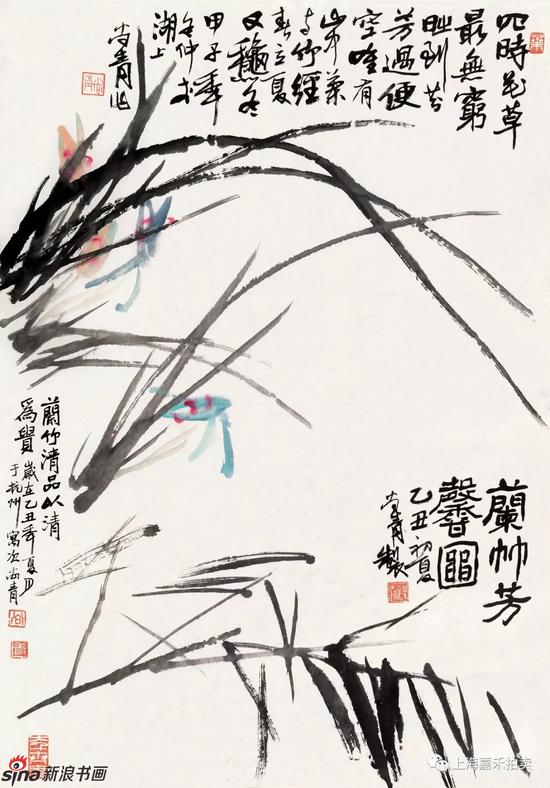 四時花草
最無窮
时到芬
芳過便
空唯有
山中蘭
与竹經
春立夏
又龝冬
甲子年
湖上
尚青作
蘭竹芳
馨圖
乙丑初夏
尚青製
蘭竹清品以清
為貴 歲在乙丑年夏月
于杭州寫次尚青
sina新浪书画
上海嘉禾拍卖